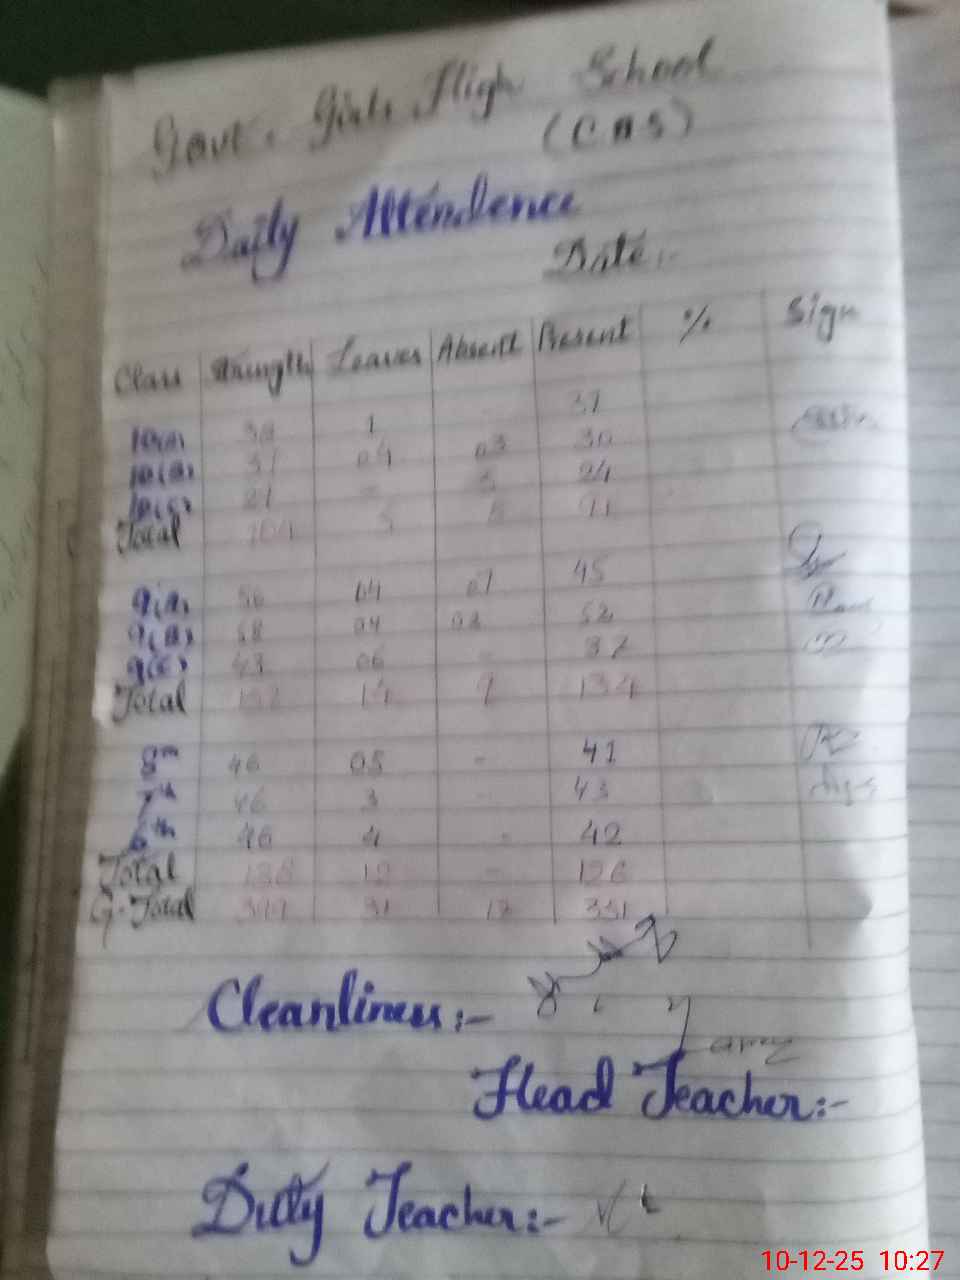 Govt. Girls High School
(C M S)
Daily Attendence
Date:-
Class Strength Leaves Absent Present % Sign
10(A) 38 1 37
10(B) 37 04 03 30
10(C) 24
Total 104 5 91
9(A) 50 04 01 45
9(B) 58 04 02 52
9(C) 43 06 - 37
Total 14 134
8th 46 05 - 41
7th 46 3 - 43
6th 46 4 - 42
Total 138 12 - 126
G.Total 31 331
Cleanliness:-
Head Teacher:-
Duty Teacher:-
10-12-25 10:27